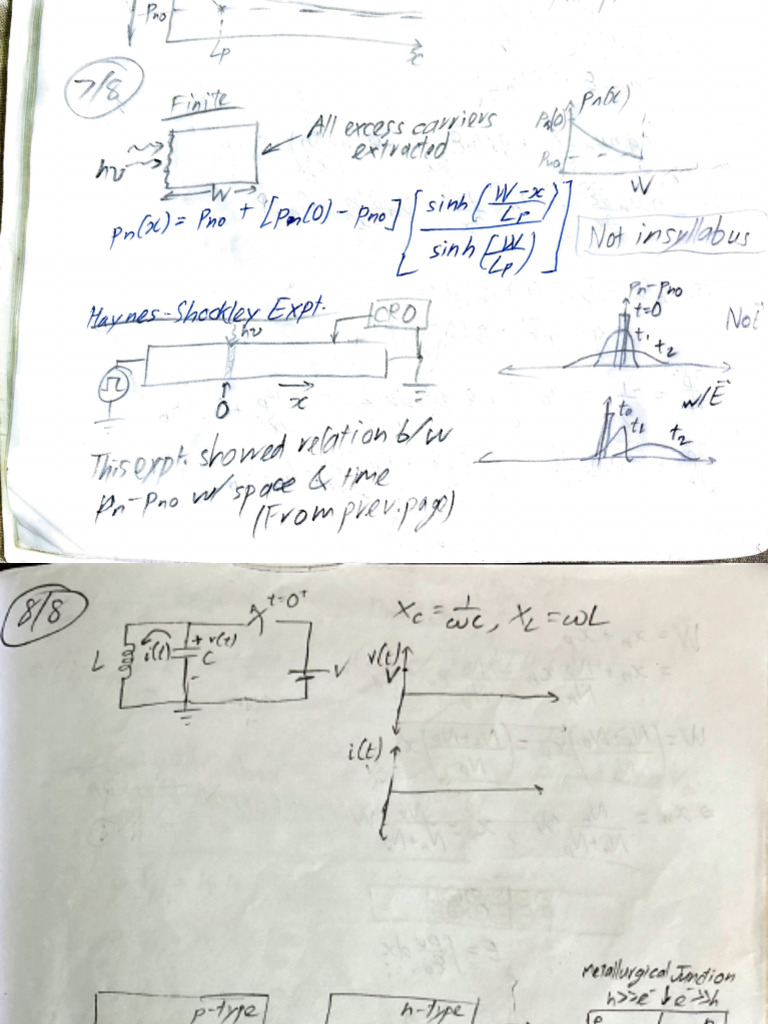 Pno
Lp
x
7/8
Finite
All excess carriers
extracted
hν
W
pn(x)
Pn(0)
Pno
W
pn(x) = Pno + [pn(0) - pno] [sinh((W-x)/Lp) / sinh(W/Lp)]
Not in syllabus
Haynes-Shockley Expt.
hν
CRO
0
x
Pn-Pno
t=0
t1
t2
w/E
to
t1
t2
This expt. showed relation b/w
Pn-Pno w/ space & time
(From prev. page)
8/8
t=0+
L
i(t)
+ v(t)
C
-
V
Xc = 1/ωc, XL = ωL
v(t)
V
i(t)
Metallurgical Junction
h>>e- e->>h
p-type
n-type
p
n